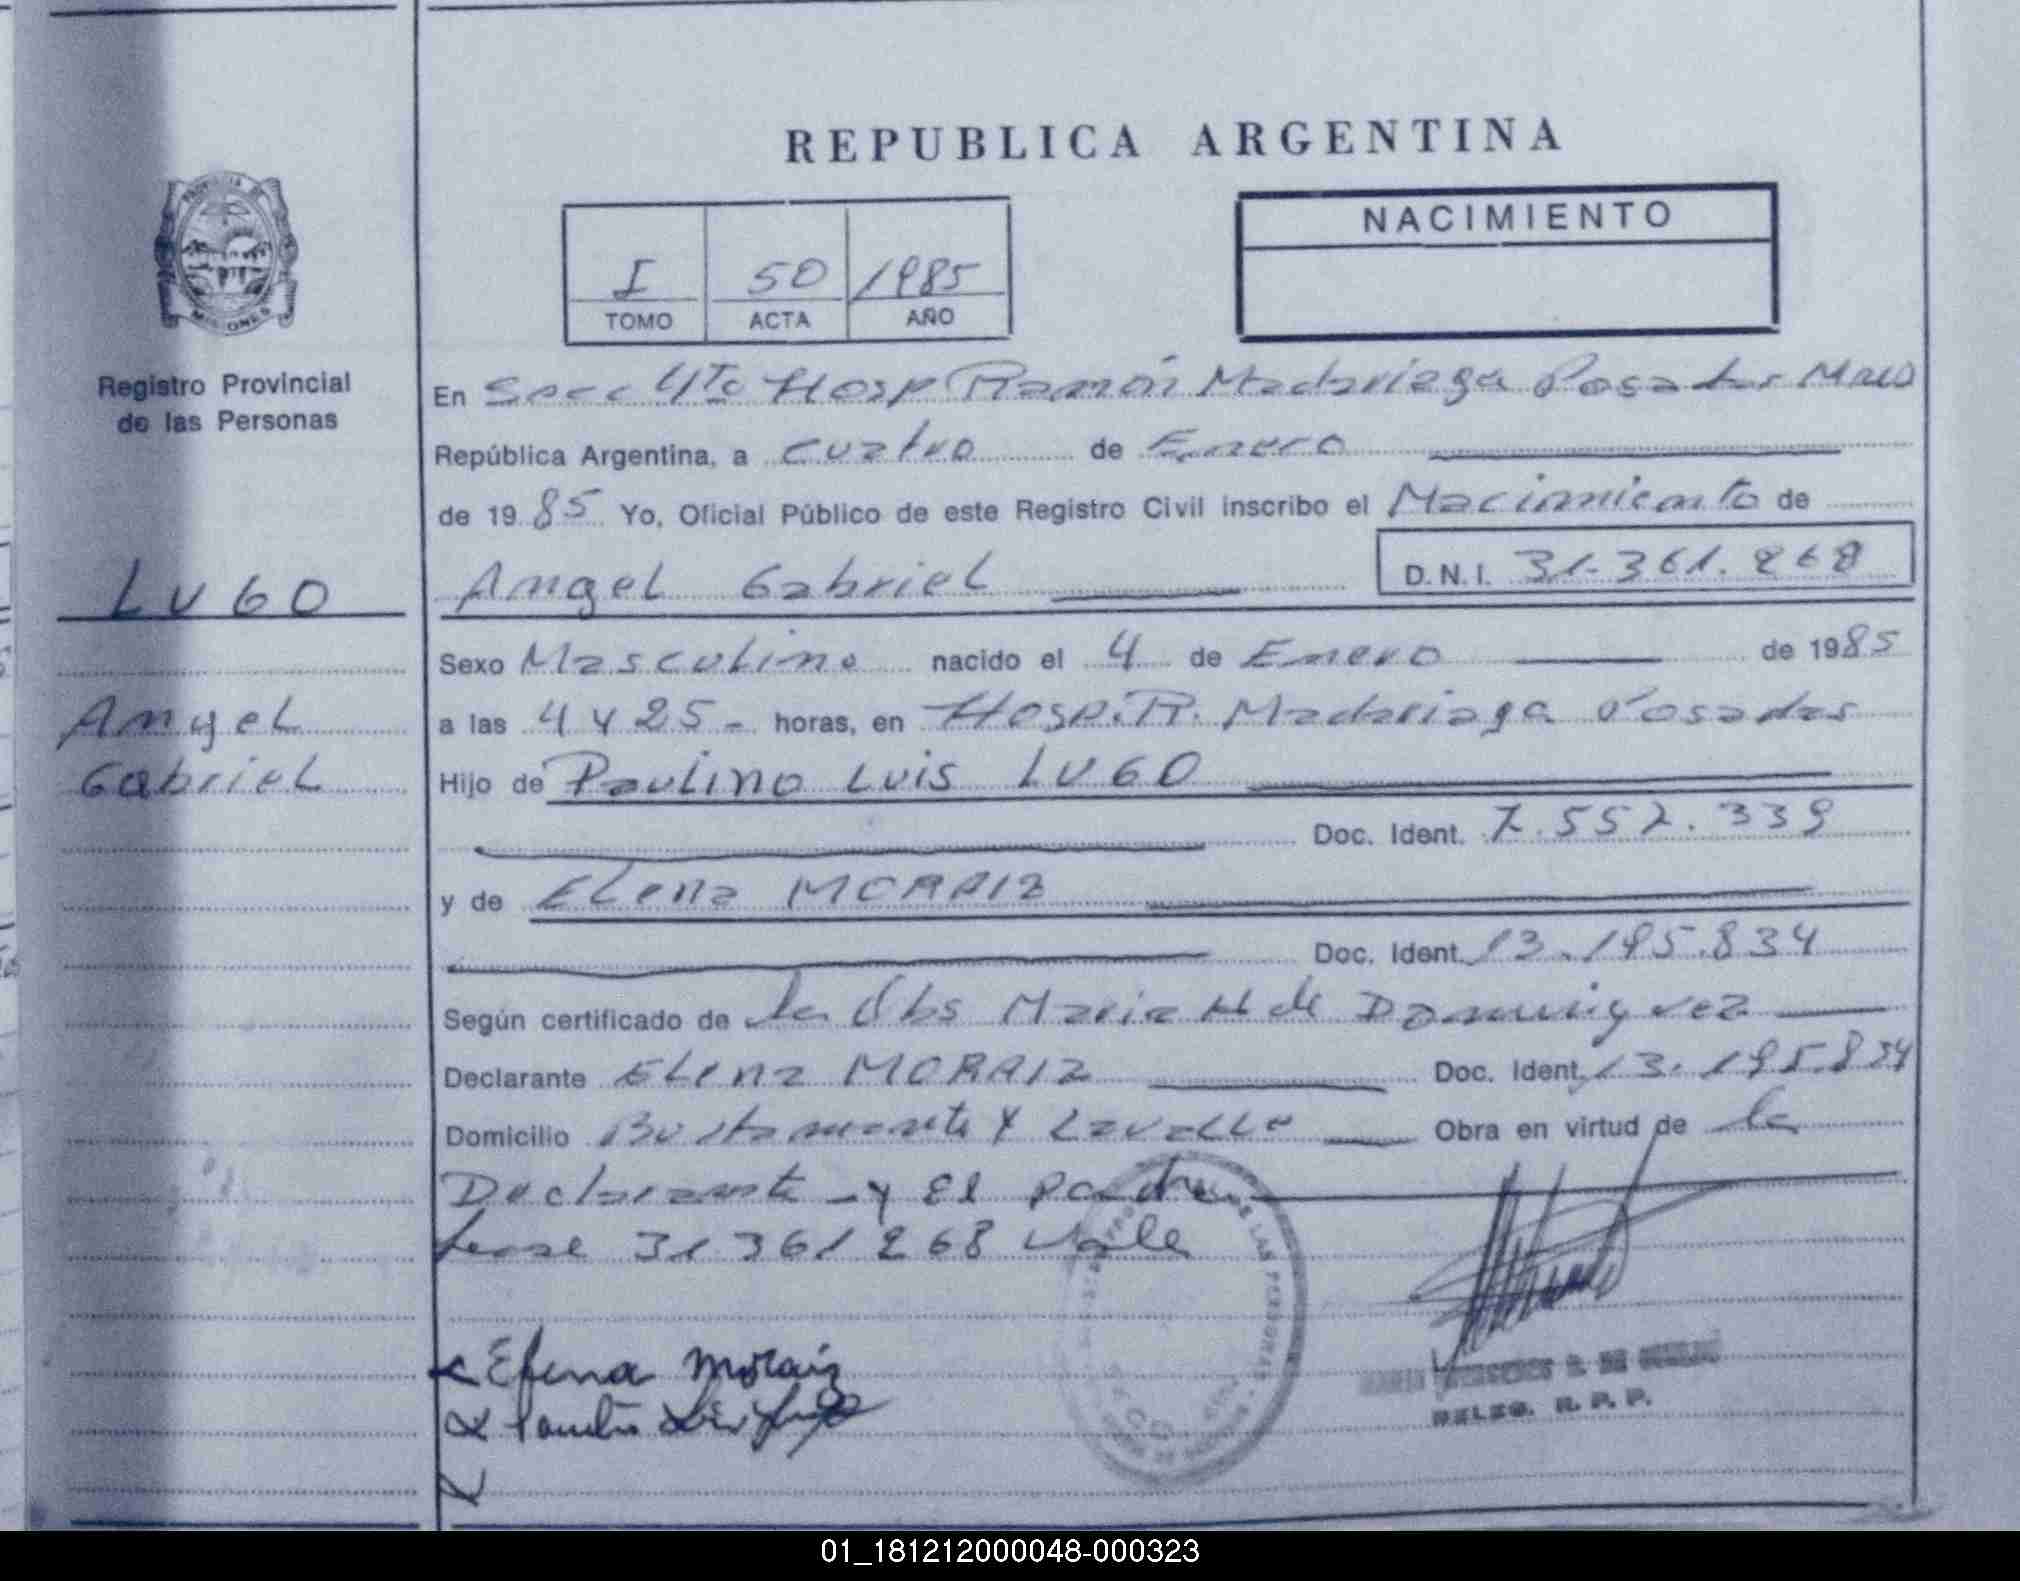 REPUBLICA ARGENTINA
PROVINCIA DE MISIONES
I 50 1985
TOMO ACTA AÑO
NACIMIENTO
Registro Provincial
de las Personas
En Secc 4To Hosp Ramón Madariaga Posadas Mnes
República Argentina, a cuatro de Enero
de 1985 Yo, Oficial Público de este Registro Civil inscribo el Nacimiento de
LUGO
Angel Gabriel
D.N.I. 31.361.268
Sexo Masculino nacido el 4 de Enero de 1985
Angel
Gabriel
a las 4 y 25- horas, en Hosp. R. Madariaga Posadas
Hijo de Paulino Luis LUGO
Doc. Ident. 7.552.339
y de Elena MORAIZ
Doc. Ident. 13.195.834
Según certificado de la Obs Maria H de Dominguez
Declarante Elena MORAIZ Doc. Ident. 13.195.834
Domicilio Bustamante y Lavalle Obra en virtud de la
Declarante - y El padre
Lease 31 361 268 Vale
Elena Moraiz
DE LAS PERSONAS
DELEG. R. P. P.
01_181212000048-000323